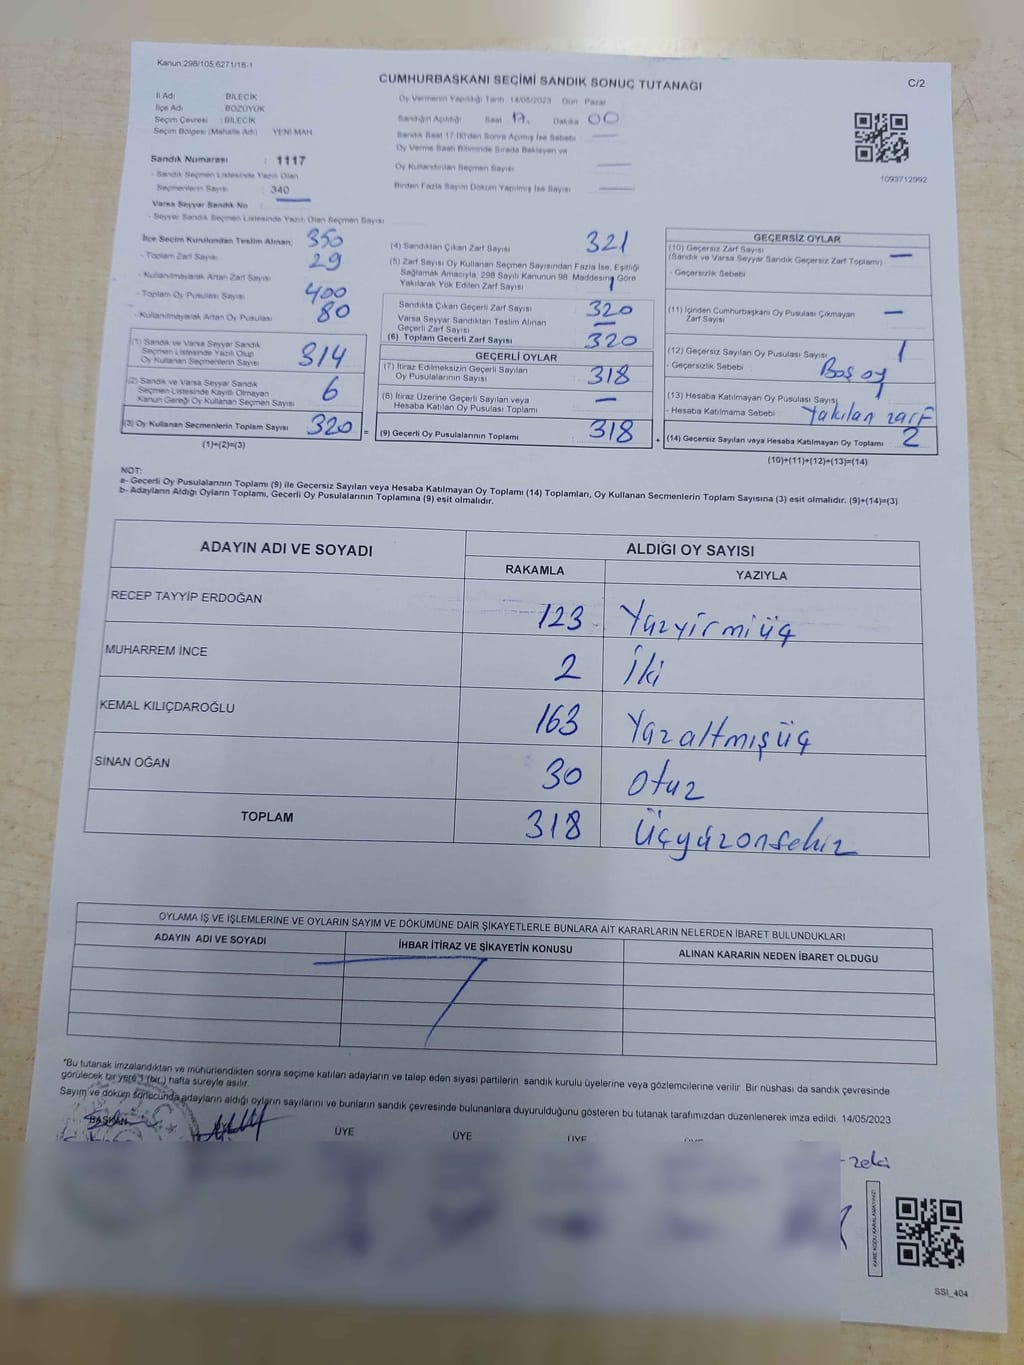 Kanun:298/105,6271/18-1
CUMHURBAŞKANI SEÇİMİ SANDIK SONUÇ TUTANAĞI
C/2
İl Adı BİLECİK
İlçe Adı BOZÜYÜK
Seçim Çevresi : BİLECİK
Seçim Bölgesi (Mahalle Adı) YENİ MAH.
Oy Vermenin Yapıldığı Tarih :14/05/2023 Gün Pazar
Sandığın Açıldığı Saat 17. Dakika 00
Sandık Saat 17:00'den Sonra Açılmış İse Sebebi
Oy Verme Saati Bitiminde Sırada Bekleyen ve
Oy Kullandırılan Seçmen Sayısı
Birden Fazla Sayım Döküm Yapılmış İse Sayısı
1093712992
Sandık Numarası : 1117
- Sandık Seçmen Listesinde Yazılı Olan
Seçmenlerin Sayısı : 340
Varsa Seyyar Sandık No
- Seyyar Sandık Seçmen Listesinde Yazılı Olan Seçmen Sayısı
İlçe Seçim Kurulundan Teslim Alınan;
- Toplam Zarf Sayısı 350
- Kullanılmayarak Artan Zarf Sayısı 29
- Toplam Oy Pusulası Sayısı 400
- Kullanılmayarak Artan Oy Pusulası 80
(1) Sandık ve Varsa Seyyar Sandık
Seçmen Listesinde Yazılı Olup
Oy Kullanan Seçmenlerin Sayısı 314
(2) Sandık ve Varsa Seyyar Sandık
Seçmen Listesinde Kayıtlı Olmayan
Kanun Gereği Oy Kullanan Seçmen Sayısı 6
(3) Oy Kullanan Seçmenlerin Toplam Sayısı 320 =
(1)+(2)=(3)
(4) Sandıktan Çıkan Zarf Sayısı 321
(5) Zarf Sayısı Oy Kullanan Seçmen Sayısından Fazla İse, Eşitliği
Sağlamak Amacıyla, 298 Sayılı Kanunun 98. Maddesine Göre
Yakılarak Yok Edilen Zarf Sayısı 1
Sandıkta Çıkan Geçerli Zarf Sayısı 320
Varsa Seyyar Sandıktan Teslim Alınan
Geçerli Zarf Sayısı —
(6) Toplam Geçerli Zarf Sayısı 320
GEÇERLİ OYLAR
(7) İtiraz Edilmeksizin Geçerli Sayılan
Oy Pusulalarının Sayısı 318
(8) İtiraz Üzerine Geçerli Sayılan veya
Hesaba Katılan Oy Pusulası Toplamı —
(9) Geçerli Oy Pusulalarının Toplamı 318 +
GEÇERSİZ OYLAR
(10) Geçersiz Zarf Sayısı
(Sandık ve Varsa Seyyar Sandık Geçersiz Zarf Toplamı) —
- Geçersizlik Sebebi
(11) İçinden Cumhurbaşkanı Oy Pusulası Çıkmayan
Zarf Sayısı —
(12) Geçersiz Sayılan Oy Pusulası Sayısı 1
- Geçersizlik Sebebi Boş oy
(13) Hesaba Katılmayan Oy Pusulası Sayısı 1
- Hesaba Katılmama Sebebi Yakılan zarf
(14) Geçersiz Sayılan veya Hesaba Katılmayan Oy Toplamı 2
(10)+(11)+(12)+(13)=(14)
NOT:
a- Geçerli Oy Pusulalarının Toplamı (9) ile Geçersiz Sayılan veya Hesaba Katılmayan Oy Toplamı (14) Toplamları, Oy Kullanan Seçmenlerin Toplam Sayısına (3) eşit olmalıdır. (9)+(14)=(3)
b- Adayların Aldığı Oyların Toplamı, Geçerli Oy Pusulalarının Toplamına (9) eşit olmalıdır.
ADAYIN ADI VE SOYADI
ALDIĞI OY SAYISI
RAKAMLA YAZIYLA
RECEP TAYYİP ERDOĞAN 123 Yüzyirmiüç
MUHARREM İNCE 2 İki
KEMAL KILIÇDAROĞLU 163 Yüzaltmışüç
SİNAN OĞAN 30 Otuz
TOPLAM 318 Üçyüzonsekiz
OYLAMA İŞ VE İŞLEMLERİNE VE OYLARIN SAYIM VE DÖKÜMÜNE DAİR ŞİKAYETLERLE BUNLARA AİT KARARLARIN NELERDEN İBARET BULUNDUKLARI
ADAYIN ADI VE SOYADI İHBAR İTİRAZ VE ŞİKAYETİN KONUSU ALINAN KARARIN NEDEN İBARET OLDUĞU
*Bu tutanak imzalandıktan ve mühürlendikten sonra seçime katılan adayların ve talep eden siyasi partilerin sandık kurulu üyelerine veya gözlemcilerine verilir. Bir nüshası da sandık çevresinde
görülecek bir yere 1 (bir) hafta süreyle asılır.
Sayım ve döküm sonucunda adayların aldığı oyların sayılarını ve bunların sandık çevresinde bulunanlara duyurulduğunu gösteren bu tutanak tarafımızdan düzenlenerek imza edildi. 14/05/2023
BAŞKAN ÜYE ÜYE ÜYE ÜYE
KARE KODU KARALAMAYINIZ!
SSİ_404